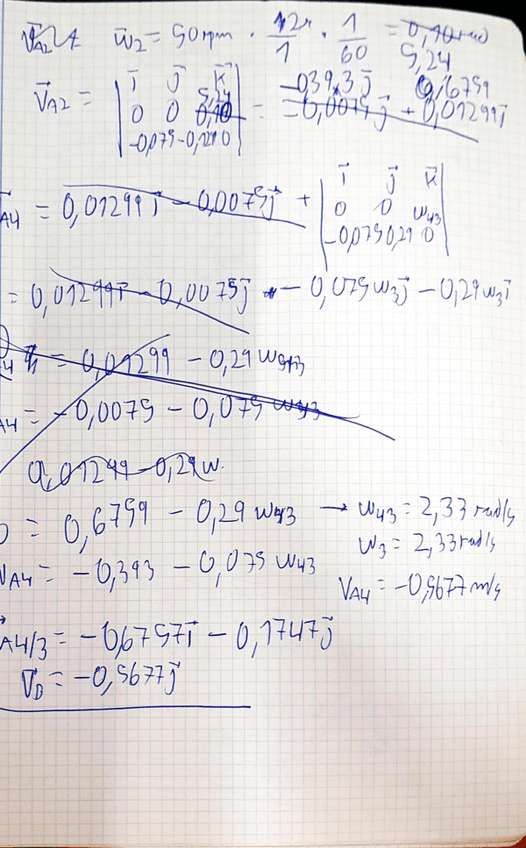 V⃗A2 ω⃗2 = 50 rpm · 12r/1 · 1/60 = 0,10 rad
5,24
V⃗A2 = | i⃗ j⃗ k⃗ | = -0,393j⃗ 0,6759
| 0 0 5,24 | = -0,0075j⃗ + 0,01299i⃗
| -0,075 -0,129 0 |
A4 = 0,01299i⃗ - 0,0075j⃗ + | i⃗ j⃗ k⃗ |
| 0 0 ω43 |
| -0,075 0,29 0 |
= 0,01299i⃗ - 0,0075j⃗ - 0,075ω3j⃗ - 0,29ω3i⃗
= 0,01299 - 0,29 ω43
A4 = -0,0075 - 0,075 ω43
0,01299 - 0,29 ω.
0 = 0,6759 - 0,29 ω43 → ω43 = 2,33 rad/s
ω3 = 2,33 rad/s
VA4 = -0,393 - 0,075 ω43
VA4 = -0,5677 m/s
A4/3 = -0,6757i⃗ - 0,1747j⃗
V⃗D = -0,5677j⃗